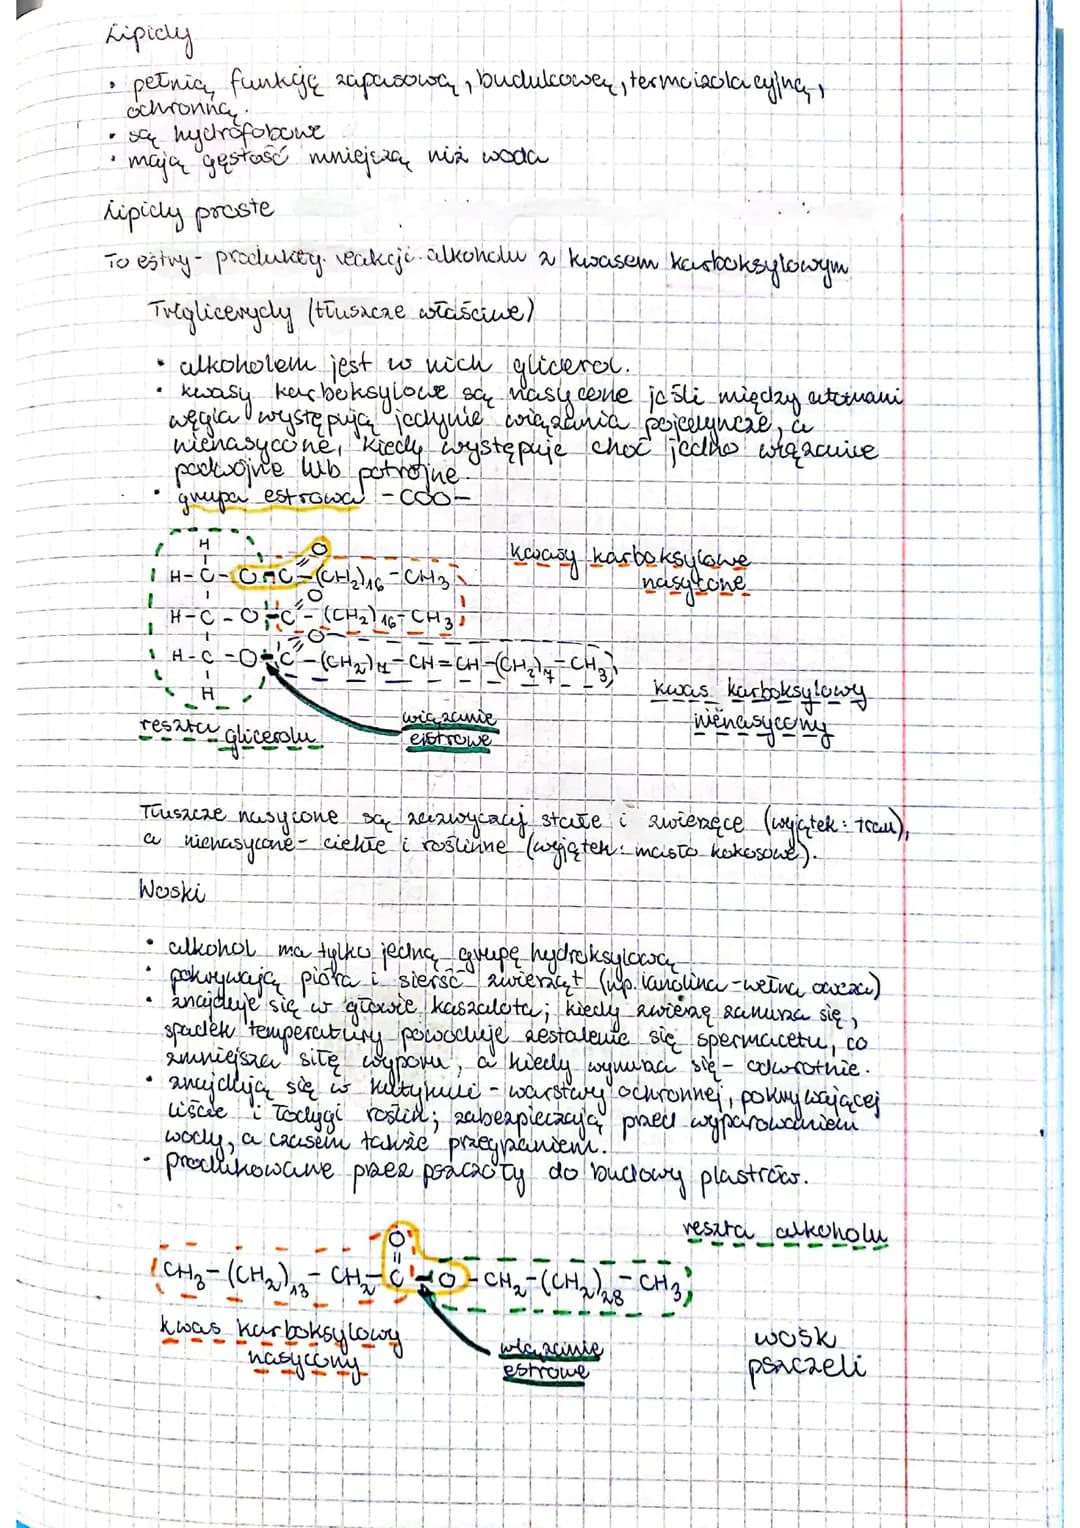 Lipidy
• pełnią funkcję zapasową, budulcową, termoizolacyjną,
ochronną.
• są hydrofobowe
• mają gęstość mniejszą niż woda
Lipidy proste
To estry - produkty reakcji alkoholu z kwasem karboksylowym
Triglicerydy (tłuszcze właściwe)
• alkoholem jest w nich glicerol.
• kwasy karboksylowe są nasycone jeśli między atomami
węgla występują jedynie wiązania pojedyncze, a
nienasycone, kiedy występuje choć jedno wiązanie
podwójne lub potrójne.
• grupa estrowa -COO-
H
O
H-C-O-C-(CH₂)₁₆-CH₃
kwasy karboksylowe
nasycone
O
H-C-O-C-(CH₂)₁₆-CH₃
O
H-C-O-C-(CH₂)₇-CH=CH-(CH₂)₇-CH₃
H
kwas karboksylowy
nienasycony
reszta glicerolu
wiązanie
estrowe
Tłuszcze nasycone są zazwyczaj stałe i zwierzęce (wyjątek: tran),
a nienasycone - ciekłe i roślinne (wyjątek: masło kokosowe).
Woski
• alkohol ma tylko jedną grupę hydroksylową
• pokrywają pióra i sierść zwierząt (np. lanolina - wełna owcza)
• znajduje się w głowie kaszalota; kiedy zwierzę zanurza się,
spadek temperatury powoduje zestalenie się spermacetu, co
zmniejsza siłę wyporu, a kiedy wynurza się - odwrotnie.
• znajdują się w kutykuli - warstwy ochronnej, pokrywającej
liście i łodygi roślin; zabezpieczają przed wyparowaniem
wody, a czasem także przegrzaniem.
• produkowane przez pszczoły do budowy plastrów.
reszta alkoholu
O
CH₃-(CH₂)₁₃-CH₂-C-O-CH₂-(CH₂)₂₈-CH₃
kwas karboksylowy
nasycony
wiązanie
estrowe
wosk
pszczeli